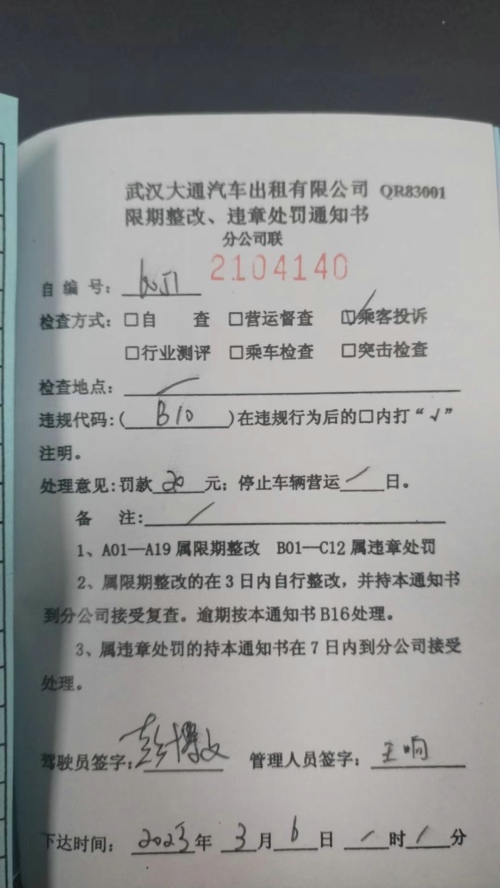 武汉大通汽车出租有限公司 QR83001
限期整改、违章处罚通知书
分公司联
2104140
自编号:
检查方式: □自 查 □营运督查 ☑乘客投诉
□行业测评 □乘车检查 □突击检查
检查地点: /
违规代码:( B10 )在违规行为后的□内打“√”
注明。
处理意见:罚款 20 元; 停止车辆营运 / 日。
备 注: /
1、A01—A19 属限期整改 B01—C12 属违章处罚
2、属限期整改的在 3 日内自行整改, 并持本通知书
到分公司接受复查。逾期按本通知书 B16 处理。
3、属违章处罚的持本通知书在 7 日内到分公司接受
处理。
驾驶员签字: 彭博文 管理人员签字: 王响
下达时间: 2023 年 3 月 6 日 / 时 / 分